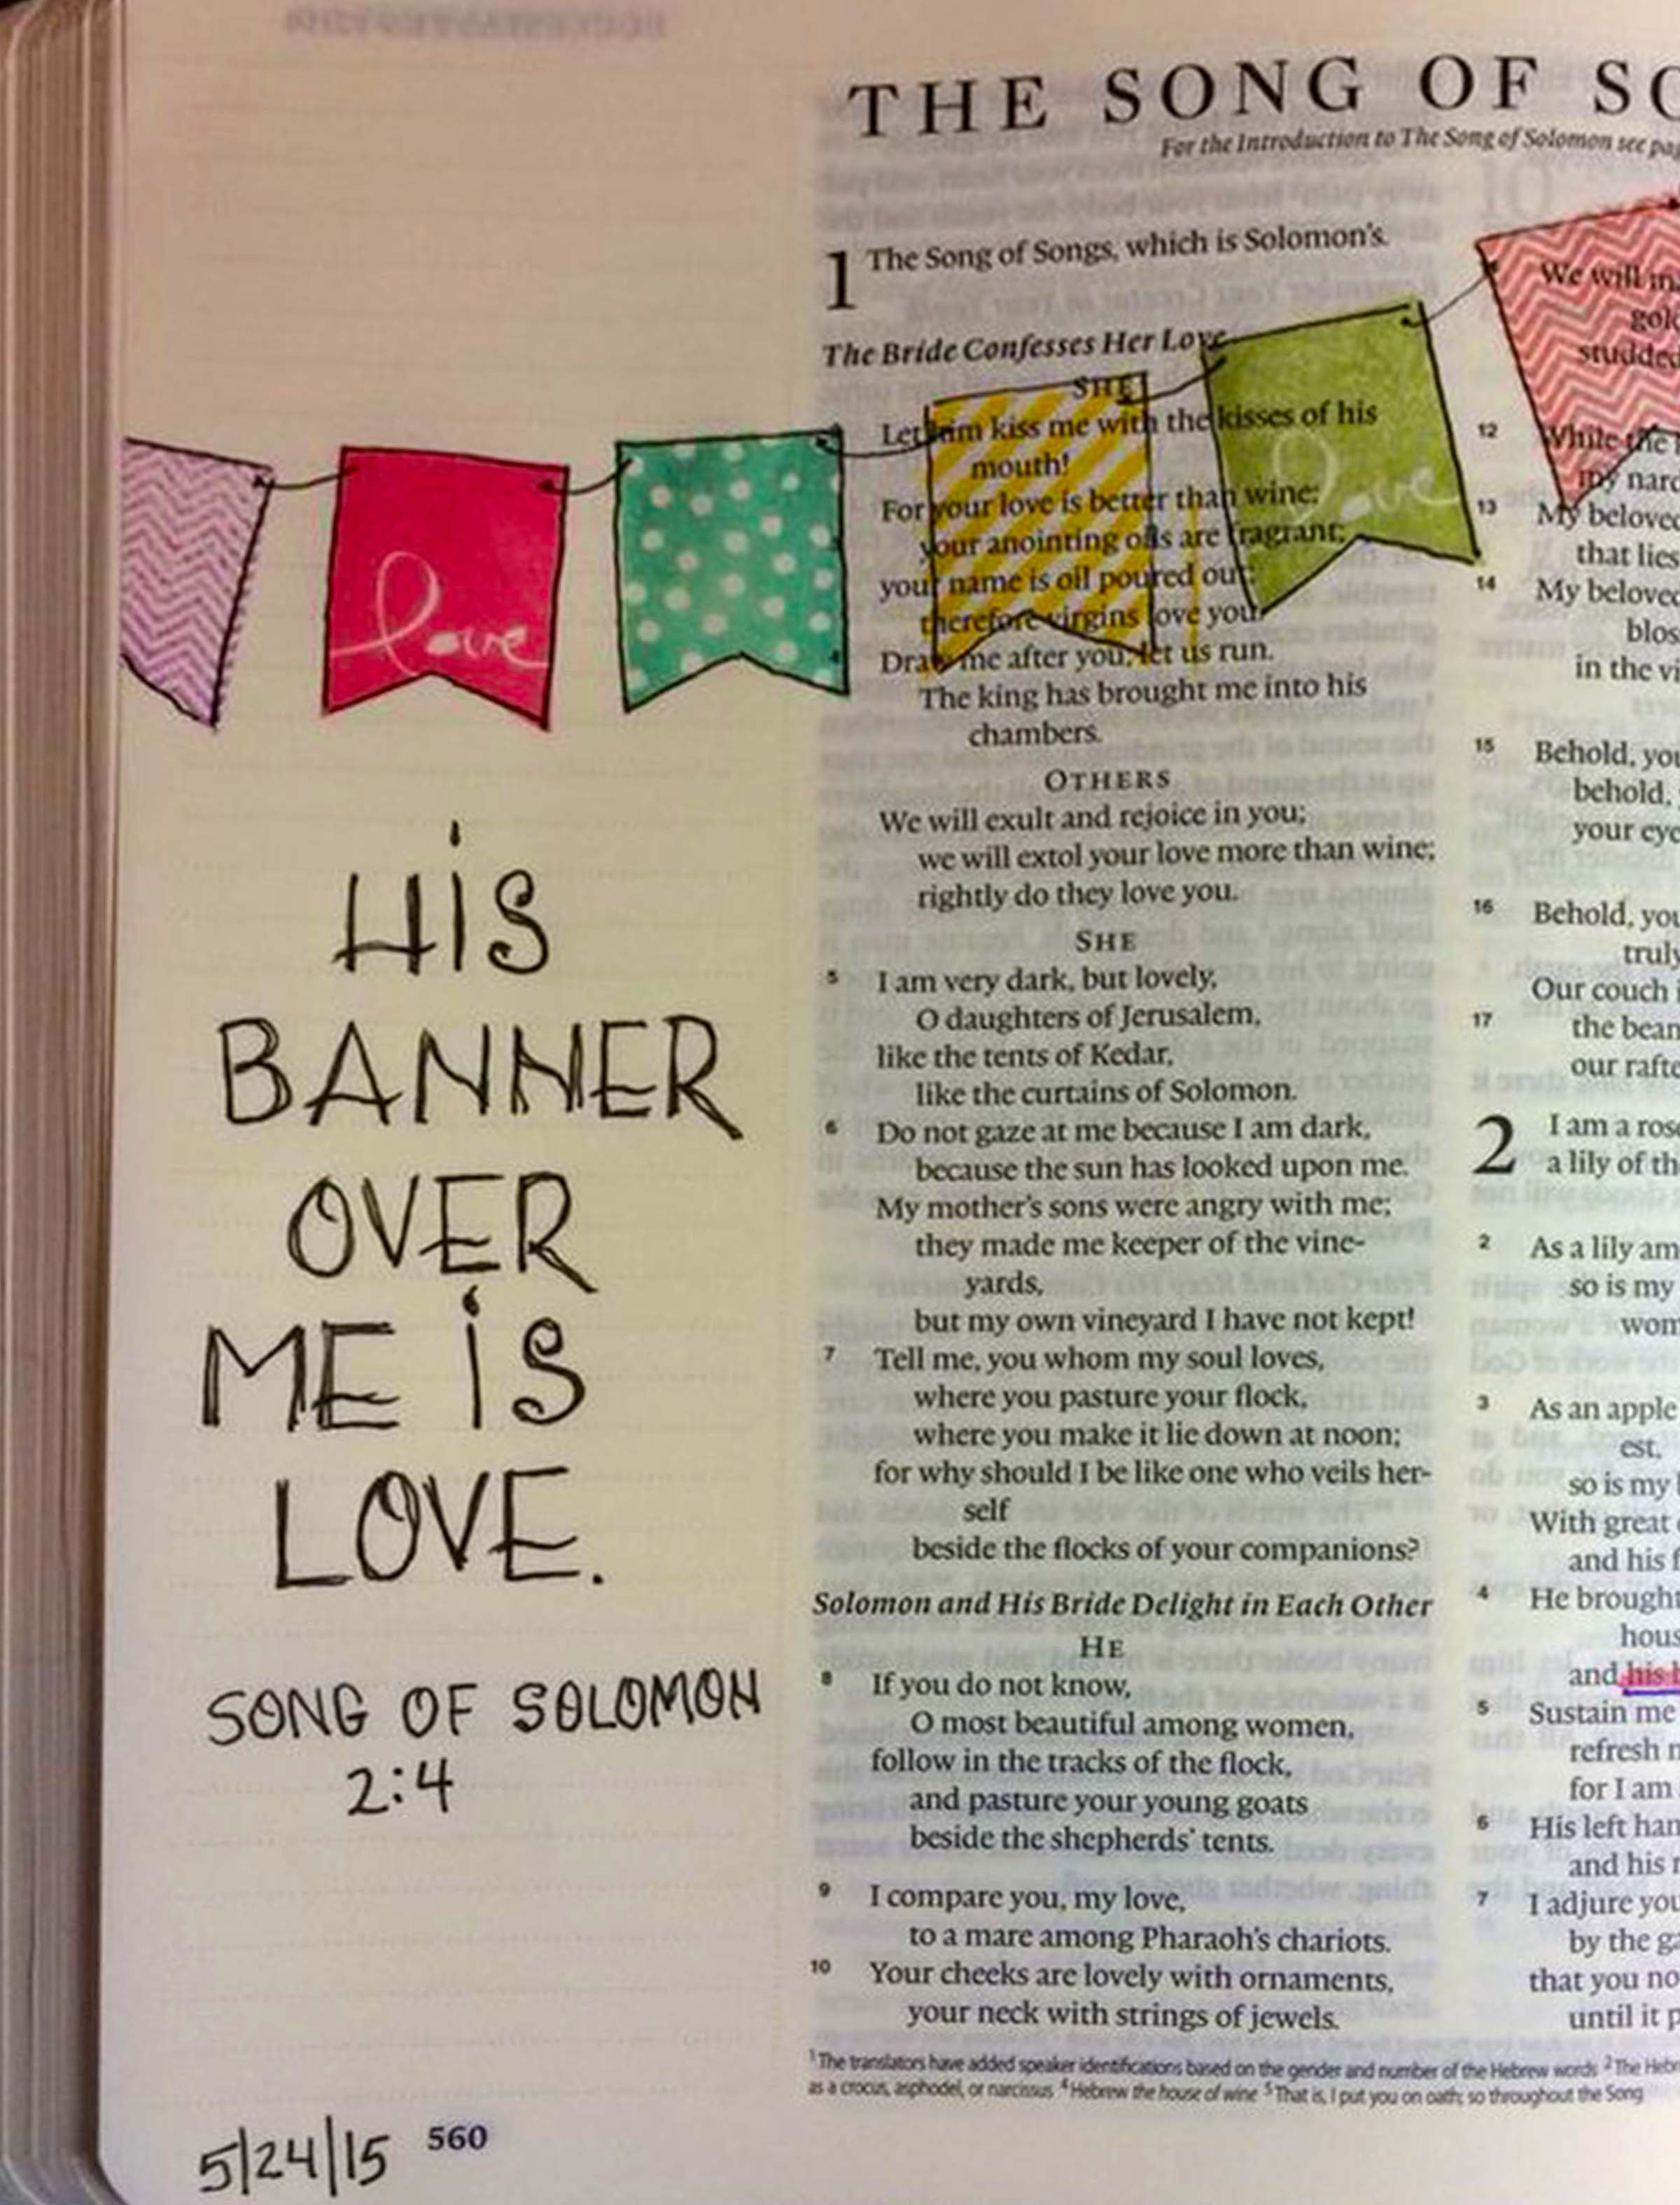 THE SONG OF
For the Introduction to The Song of Solomon see
1 The Song of Songs, which is Solomon's.
The Bride Confesses Her Love
SHE
Let him kiss me with the kisses of his
mouth!
For your love is better than wine;
your anointing oils are fragrant;
your name is oil poured out;
therefore virgins love you.
Draw me after you; let us run.
The king has brought me into his
chambers.
OTHERS
We will exult and rejoice in you;
we will extol your love more than wine;
rightly do they love you.
SHE
5 I am very dark, but lovely,
O daughters of Jerusalem,
like the tents of Kedar,
like the curtains of Solomon.
6 Do not gaze at me because I am dark,
because the sun has looked upon me.
My mother's sons were angry with me;
they made me keeper of the vine-
yards,
but my own vineyard I have not kept!
7 Tell me, you whom my soul loves,
where you pasture your flock,
where you make it lie down at noon;
for why should I be like one who veils her-
self
beside the flocks of your companions?
Solomon and His Bride Delight in Each Other
HE
8 If you do not know,
O most beautiful among women,
follow in the tracks of the flock,
and pasture your young goats
beside the shepherds' tents.
9 I compare you, my love,
to a mare among Pharaoh's chariots.
10 Your cheeks are lovely with ornaments,
your neck with strings of jewels.
We will
studded
12 While the
my
13 My
that lies
14 My
in the
15 Behold,
behold,
your
16 Behold,
truly
Our couch
17 the
our
2 I am a
a lily of
2 As a lily
so is my
3 As an apple
est,
so is my
With great
and his
4 He brought
and his
5 Sustain me
refresh
for I am
6 His left
and his
7 I adjure
by the
that you
until it
1 The translators have added speaker identifications based on the gender and number of the Hebrew words 2 The
as a crocus, asphodel, or narcissus 4 Hebrew the house of wine 5 That is, I put you on oath; so throughout the Song
love
love
HiS
BANNER
OVER
ME iS
LOVE.
SONG OF SOLOMON
2:4
5/24/15 560